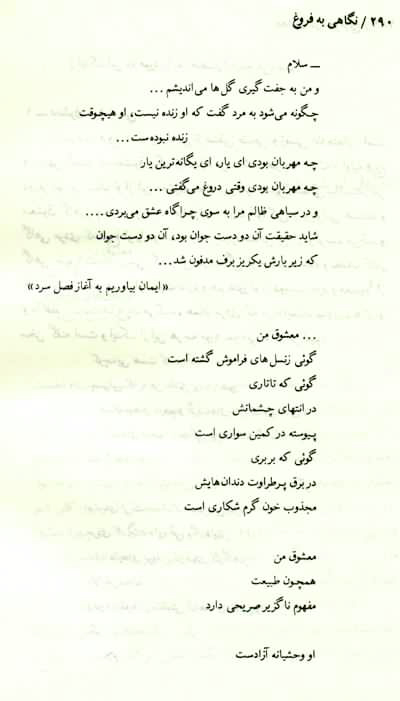 ۲۹۰ / نگاهی به فروغ
ــ سلام
و من به جفت گیری گل‌ها می‌اندیشم ...
چگونه می‌شود به مرد گفت که او زنده نیست، او هیچوقت
زنده نبوده‌ست ...
چه مهربان بودی ای یار، ای یگانه‌ترین یار
چه مهربان بودی وقتی دروغ می‌گفتی ...
و در سیاهی ظالم مرا به سوی چراگاه عشق می‌بردی ....
شاید حقیقت آن دو دست جوان بود، آن دو دست جوان
که زیر بارش یکریز برف مدفون شد ...
«ایمان بیاوریم به آغاز فصل سرد»
... معشوق من
گوئی ز نسل‌های فراموش گشته است
گوئی که تاتاری
در انتهای چشمانش
پیوسته در کمین سواری است
گوئی که بربری
در برق پرطراوت دندان‌هایش
مجذوب خون گرم شکاری است
معشوق من
همچون طبیعت
مفهوم ناگزیر صریحی دارد
او وحشیانه آزادست